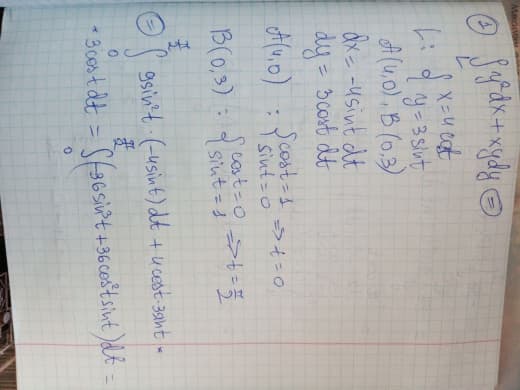 ① ∫L y²dx + xydy ⊜
L: { x = 4cost
y = 3sint
A(4,0), B(0,3)
dx = -4sint dt
dy = 3cost dt
A(4,0) : { cost = 1
sint = 0 => t = 0
B(0,3) : { cost = 0
sint = 1 => t = π/2
⊜ ∫₀^{π/2} 9sin²t · (-4sint) dt + 4cost · 3sint *
* 3cost dt = ∫₀^{π/2} (-36sin³t + 36cos²t sint) dt =